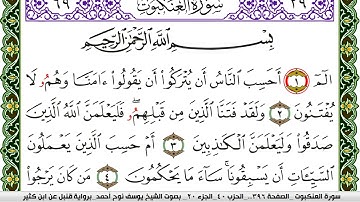 ٦٩ سُورَةُ العَنكَبُوتِ ٢٩
بِسْمِ اللَّهِ الرَّحْمَٰنِ الرَّحِيمِ
الٓمٓ ١ أَحَسِبَ النَّاسُ أَن يُتْرَكُوا أَن يَقُولُوا ءَامَنَّا وَهُمُۥ لَا
يُفْتَنُونَ ٢ وَلَقَدْ فَتَنَّا الَّذِينَ مِن قَبْلِهِمُۥ فَلَيَعْلَمَنَّ اللَّهُ الَّذِينَ
صَدَقُوا وَلَيَعْلَمَنَّ الْكَٰذِبِينَ ٣ أَمْ حَسِبَ الَّذِينَ يَعْمَلُونَ
السَّيِّـَٔاتِ أَن يَسْبِقُونَا سَآءَ مَا يَحْكُمُونَ ٤ مَن كَانَ يَرْجُوا
سورة العنكبوت .. الصفحة ٣٩٦.. الحزب ٤٠ .. الجزء ٢٠.. بصوت الشيخ يوسف نوح أحمد .. برواية قنبل عن ابن كثير